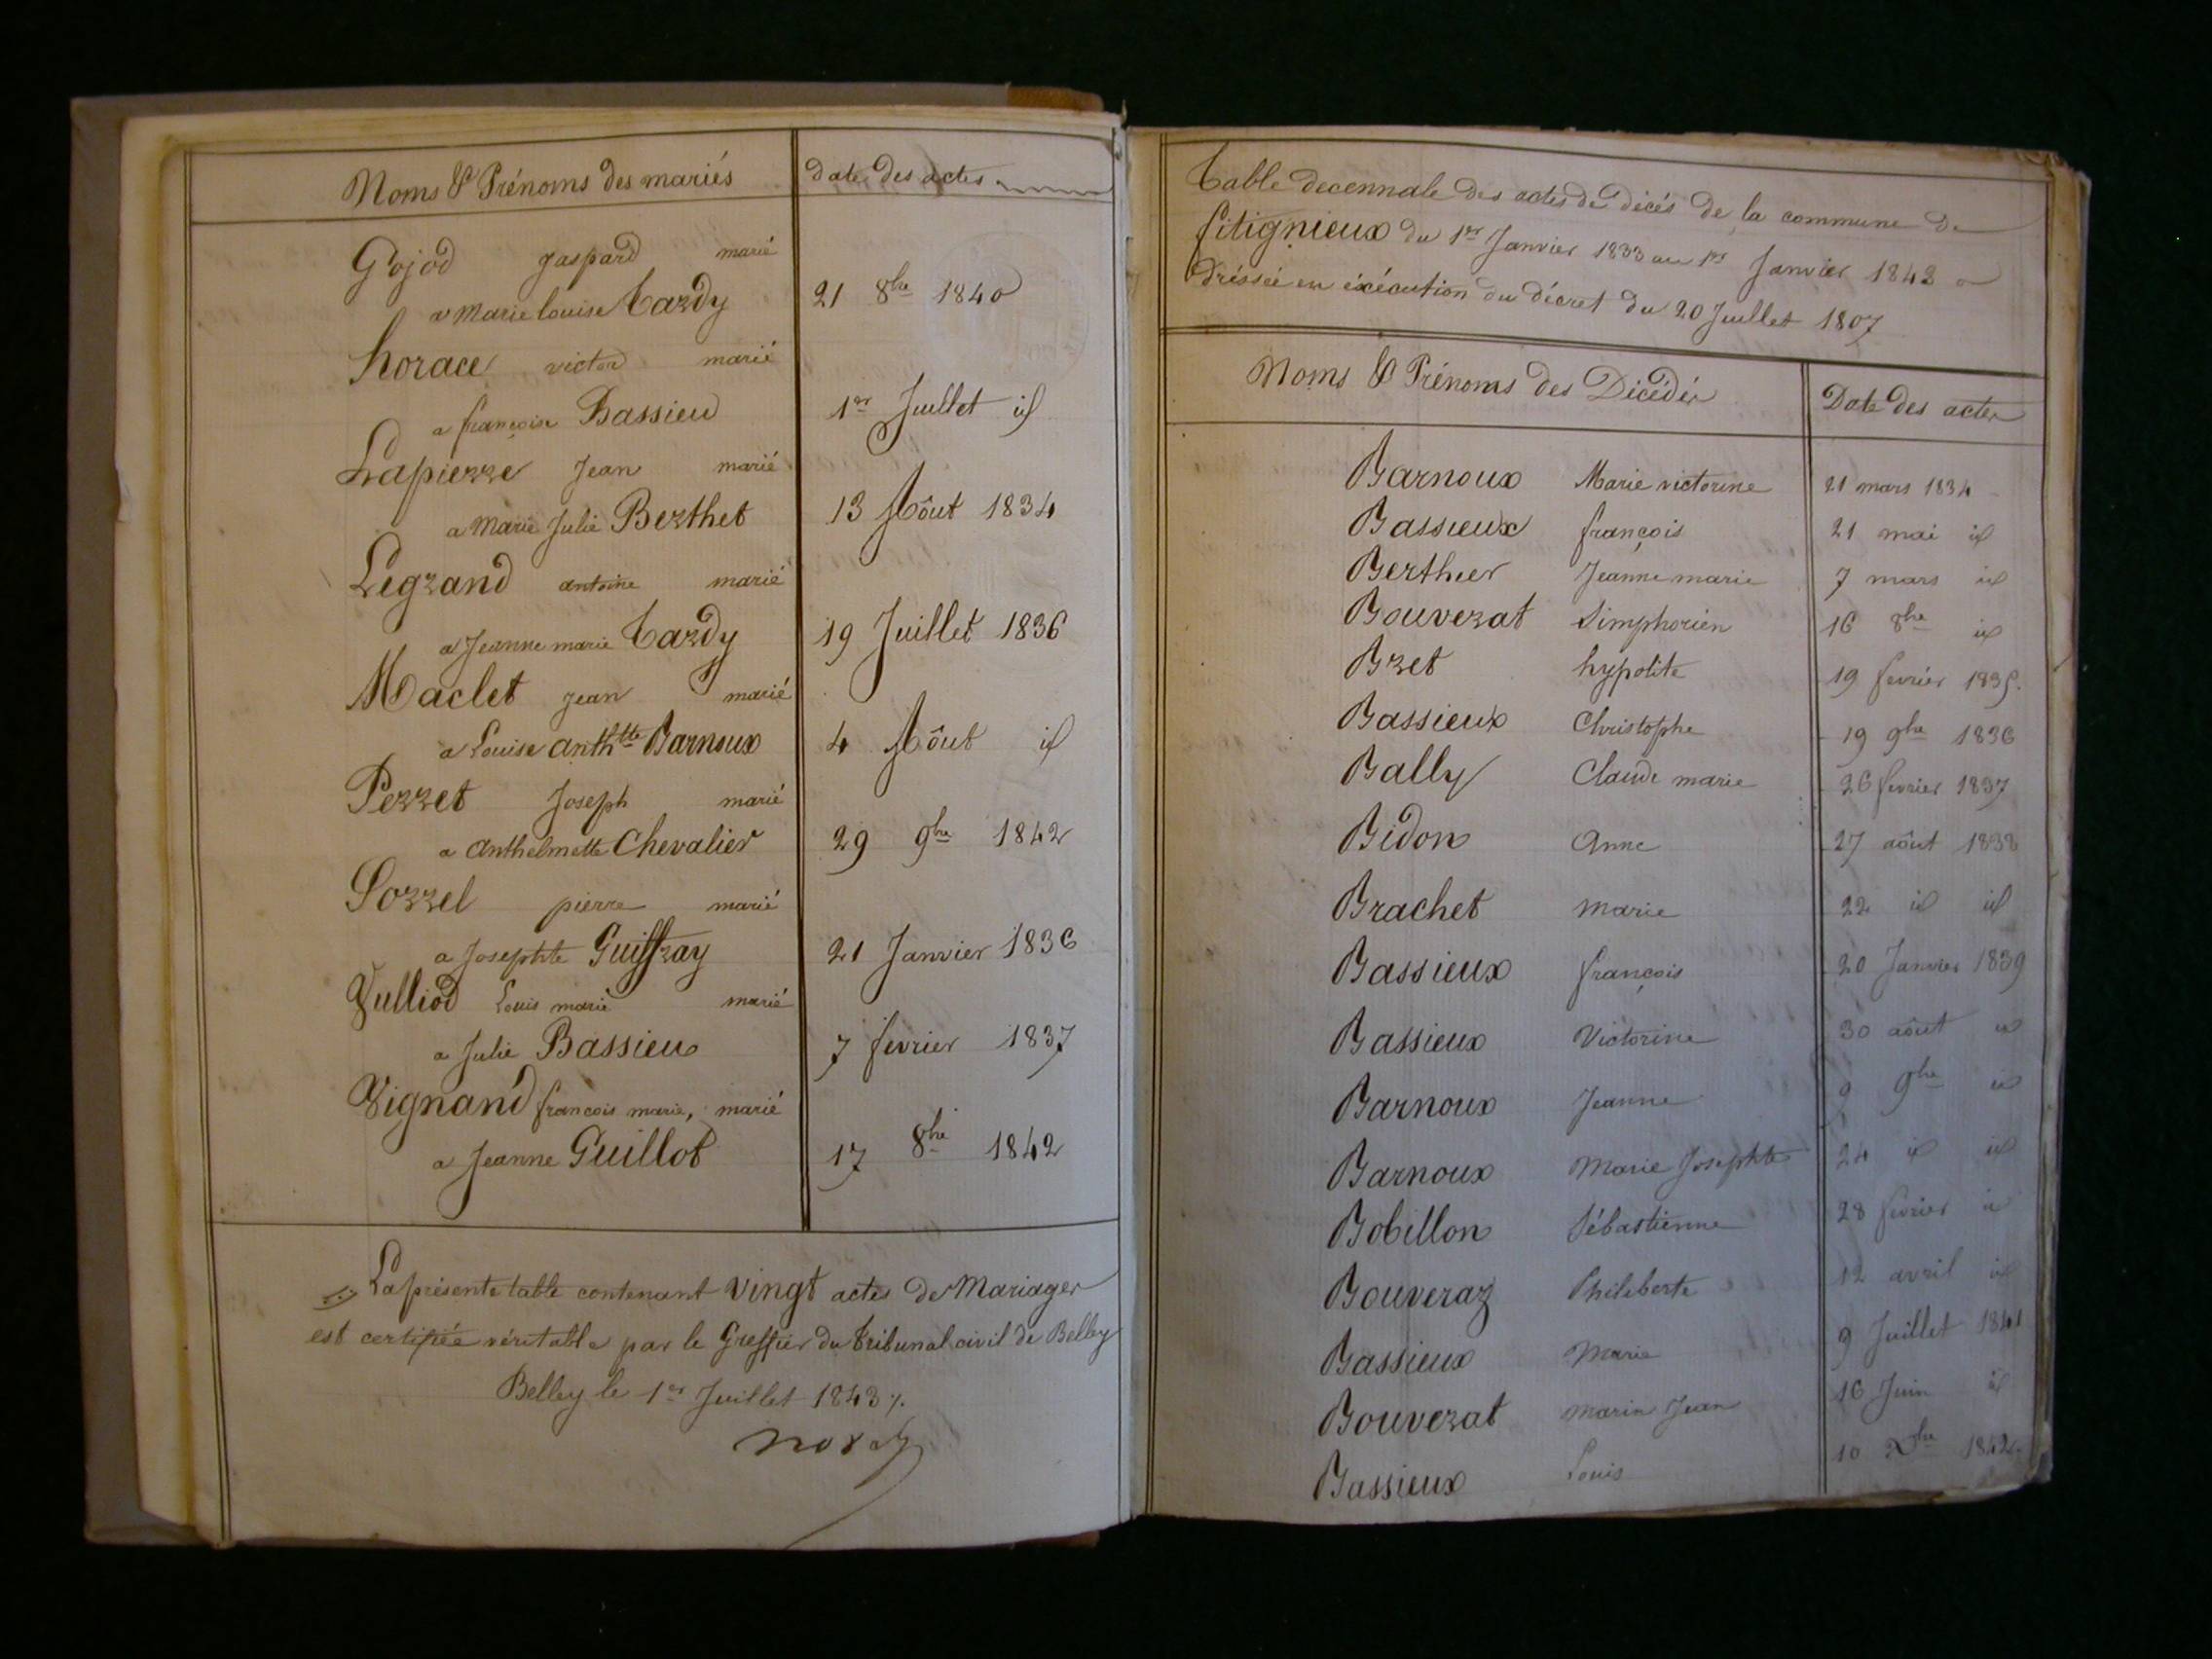 Noms & Prénoms des mariés
date des actes
Gojod gaspard marié
a Marie louise Tardy 21 8bre 1840
horace victor marié
a françoise Bassieu 1er Juillet id
Lapierre Jean marié
a Marie Julie Berthet 13 Aôut 1834
Legrand antoine marié
a Jeanne marie Tardy 19 Juillet 1836
Maclet jean marié
a Louise anthtte Barnoux 4 Aôut id
Perret Joseph marié
a anthelmette Chevalier 29 9bre 1842
Sorrel pierre marié
a Josephte Guiffray 21 Janvier 1836
Vulliod Louis marie marié
a Julie Bassieu 7 fevrier 1837
Vignand francois marie, marié
a Jeanne Guillot 17 8bre 1842
La présente table contenant vingt actes de Mariages
est certifiée véritable par le Greffier du tribunal civil de Belley
Belley le 1er Juillet 1843
Table decennale des actes de décés de la commune de
fitignieux du 1er Janvier 1833 au 1er Janvier 1843
dréssée en éxécution du décret du 20 Juillet 1807
Noms & Prénoms des Décédés
Date des actes
Barnoux Marie victorine 21 mars 1834
Bassieux françois 21 mai id
Berthier Jeanne marie 7 mars id
Bouverat Simphorien 16 8bre id
Bret hypolite 19 fevrier 1835.
Bassieux Christophe 19 9bre 1836
Bally Claude marie 26 fevrier 1837
Bidon Anne 27 aôut 1838
Brachet Marie 22 id id
Bassieux françois 20 Janvier 1839
Bassieux Victorine 30 aôut id
Barnoux Jeanne 9 9bre id
Barnoux Marie Josephte 24 id id
Bobillon Sébastienne 28 fevrier id
Bouveraz Philiberte 12 avril id
Bassieux Marie 9 Juillet 1841
Bouverat Marin Jean 16 Juin id
Bassieux Louis 10 Xbre 1842.